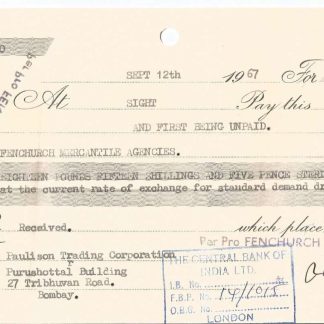 SEPT 12th 1967 For
At SIGHT Pay this
AND FIRST BEING UNPAID.
FENCHURCH MERCANTILE AGENCIES.
EIGHTEEN POUNDS FIFTEEN SHILLINGS AND FIVE PENCE STER
at the current rate of exchange for standard demand d
Received. which place
Per Pro FENCHURCH
Paulison Trading Corporation
Purushottal Building
27 Tribhuvan Road.
Bombay.
THE CENTRAL BANK OF
INDIA LTD.
I.B. No.
F.B.P. No. 14/1015
O.B.G. No.
LONDON